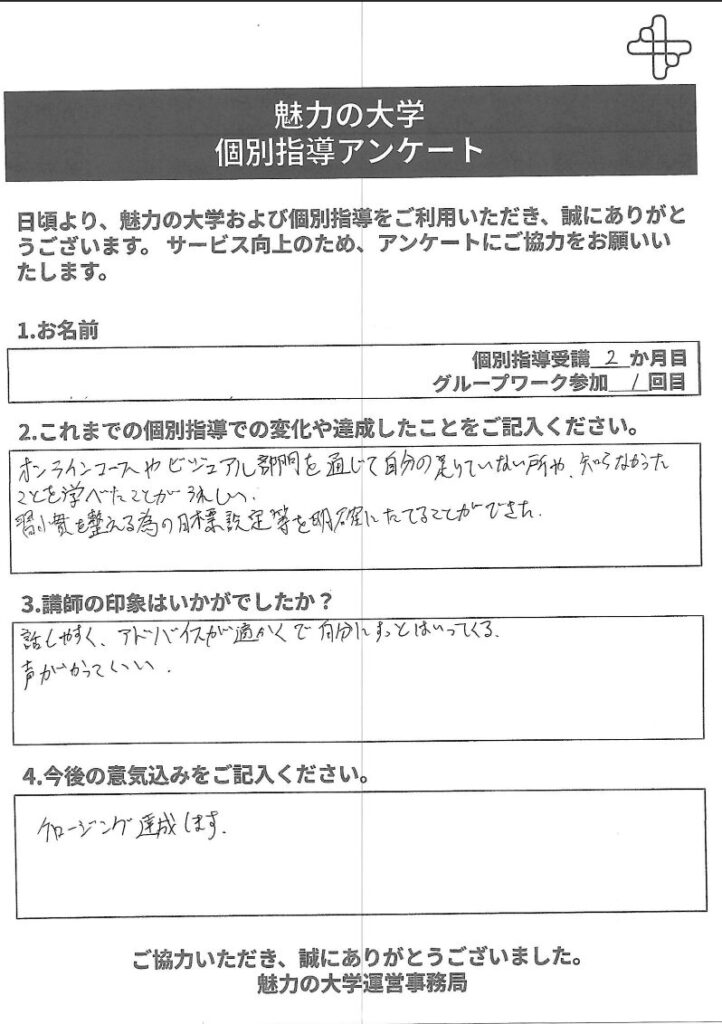 魅力の大学
個別指導アンケート
日頃より、魅力の大学および個別指導をご利用いただき、誠にありがと
うございます。 サービス向上のため、アンケートにご協力をお願いい
たします。
1.お名前
個別指導受講 2 か月目
グループワーク参加 1 回目
2.これまでの個別指導での変化や達成したことをご記入ください。
オンラインコースやビジュアル部門を通じて自分の足りていない所や、知らなかった
ことを学べたことがうれしい.
習慣を整える為の目標設定等を明確にたてることができた.
3.講師の印象はいかがでしたか？
話しやすく、アドバイスが適かくで自分にすっとはいってくる.
声が かっていい.
4.今後の意気込みをご記入ください。
クロージング達成します.
ご協力いただき、誠にありがとうございました。
魅力の大学運営事務局